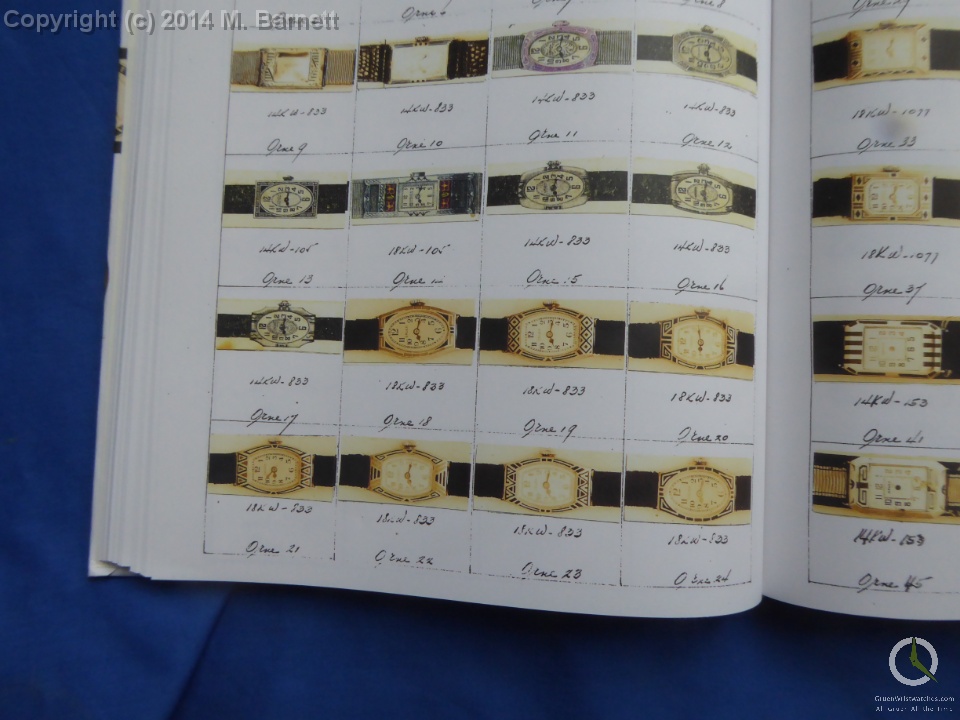 Copyright (c) 2014 M. Barnett
14KW-833
14KW-833
14KW-833
14KW-833
Orne 9
Orne 10
Orne 11
Orne 12
14KW-105
18KW-105
14KW-833
14KW-833
Orne 13
Orne 14
Orne 15
Orne 16
14KW-833
18KW-833
18KW-833
18KW-833
Orne 17
Orne 18
Orne 19
Orne 20
18KW-833
18KW-833
18KW-833
18KW-833
Orne 21
Orne 22
Orne 23
Orne 24
18KW-1077
Orne 33
18KW-1077
Orne 37
14KW-153
Orne 41
14KW-153
Orne 45
GruenWristwatches.com
All Gruen All the Time